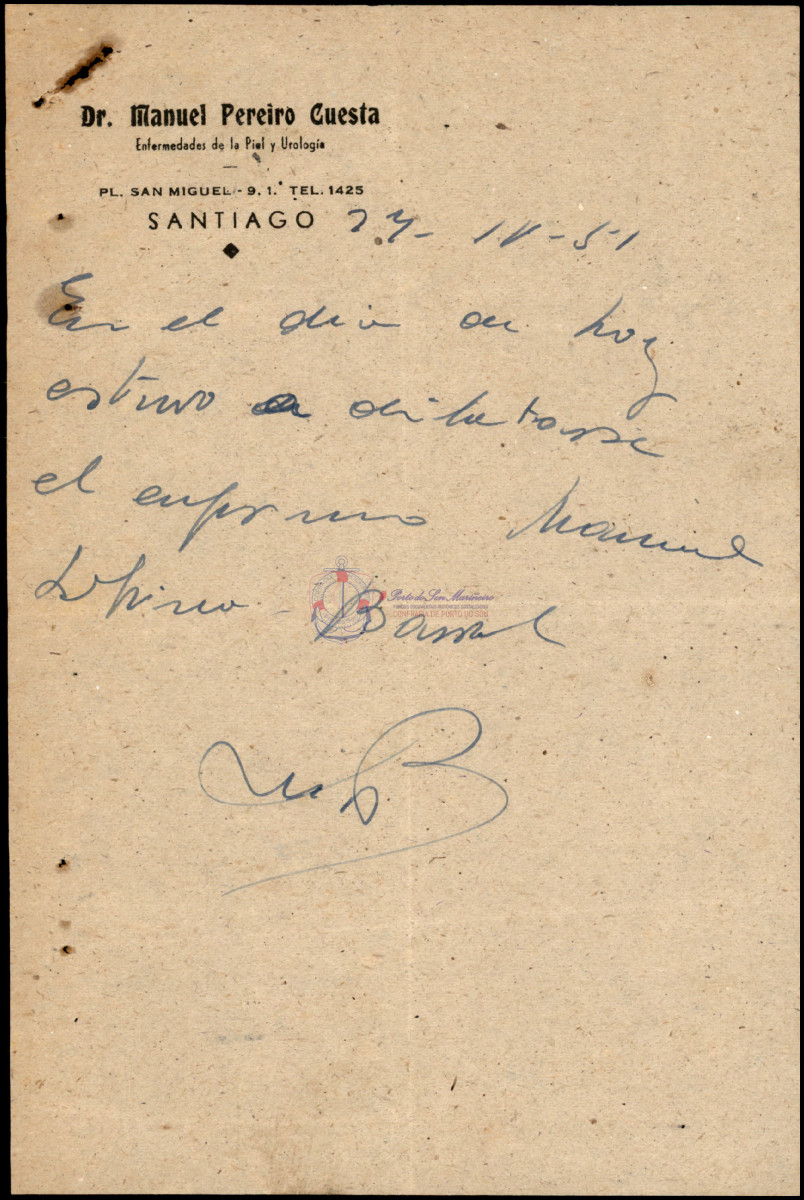 Dr. Manuel Pereiro Cuesta
Enfermedades de la Piel y Urología
PL. SAN MIGUEL - 9. 1.° TEL. 1425
SANTIAGO
51
En el dia de hoy
estuvo a dilatarse
el enfermo Manuel
Porto do Son Mariñeiro
CONFRARÍA DE PORTO DO SON